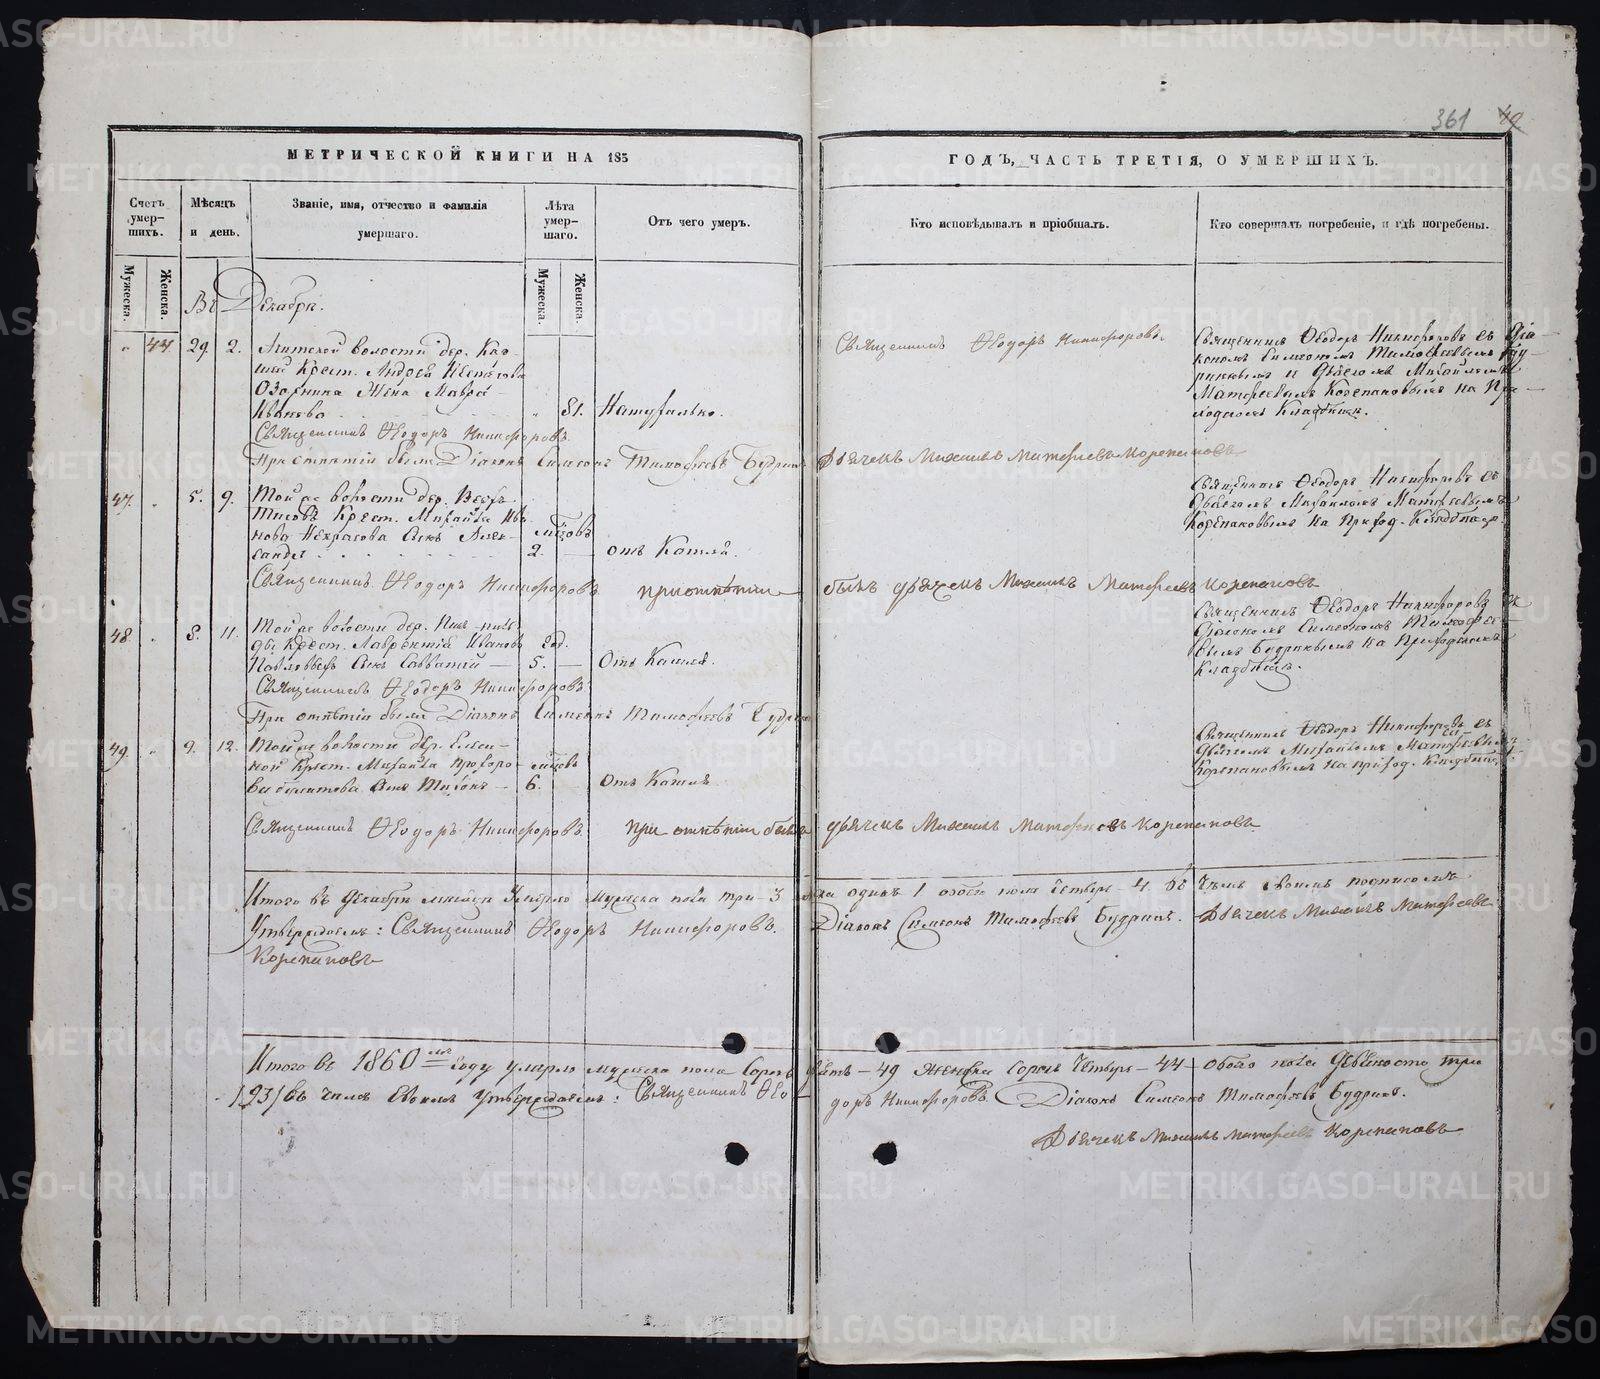 361 42
МЕТРИЧЕСКОЙ КНИГИ НА 185
ГОДЪ, ЧАСТЬ ТРЕТІЯ, О УМЕРШИХЪ.
Счетъ умер-шихъ.
Мужеска.
Женска.
Мѣсяцъ и день.
Званіе, имя, отчество и фамилія умершаго.
Лѣта умер-шаго.
Мужеска.
Женска.
Отъ чего умеръ.
Кто исповѣдывалъ и пріобщалъ.
Кто совершалъ погребеніе, и гдѣ погребены.
Въ Декабрѣ.
44. 29. 2. Ачитской волости дер.
Крест. Андрея
Жена Мавра
Иванова 81. Натурально.
Священникъ Ѳеодоръ Никифоровъ.
Священникъ Ѳеодоръ Никифоровъ съ Діа-
кономъ Симеономъ Тимофѣевымъ Буд-
ринымъ и Дьячкомъ Михайломъ
Матфеевымъ Корепановымъ на При-
ходскомъ Кладбищѣ.
Священникъ Ѳеодоръ Никифоровъ.
При отпѣтіи были Діаконъ Симеонъ Тимофѣевъ Будринъ Дьячекъ Михаилъ Матфѣевъ Корепановъ
47. 5. 9. Той же волости дер.
Крест. Михайла Ива-
нова Некрасова сынъ Алек-
сандръ мѣсяцовъ 2. отъ Кашля.
Священникъ Ѳеодоръ Никифоровъ съ
Дьячкомъ Михайломъ Матфѣевымъ
Корепановымъ на Приход. Кладбищѣ.
Священникъ Ѳеодоръ Никифоровъ при отпѣтіи былъ дьячекъ Михаилъ Матфеевъ Корепановъ
48. 8. 11. Той же волости дер.
Крест. Лаврентія Иванова год.
сынъ Савватій 5. Отъ Кашля.
Священникъ Ѳеодоръ Никифоровъ съ
Діакономъ Симеономъ Тимофѣе-
вымъ Будринымъ на Приходскомъ
Кладбищѣ.
Священникъ Ѳеодоръ Никифоровъ.
При отпѣтіи былъ Діаконъ Симеонъ Тимофѣевъ Будринъ
49. 9. 12. Той же волости дер.
Крест. Михайла Прохоро- мѣсяцовъ
ва сынъ Тихонъ 6. Отъ Кашля.
Священникъ Ѳеодоръ Никифоровъ съ
Дьячкомъ Михайломъ Матфѣевымъ
Корепановымъ на приход. Кладбищѣ.
Священникъ Ѳеодоръ Никифоровъ. при отпѣтіи былъ дьячекъ Михаилъ Матфеевъ Корепановъ
Итого въ Декабрѣ мѣсяцѣ Умерло мужеска пола три 3 женска одинъ 1 обоего пола Четыре 4. Въ чемъ своимъ подписомъ
Утверждаемъ: Священникъ Ѳеодоръ Никифоровъ. Діаконъ Симеонъ Тимофѣевъ Будринъ. Дьячекъ Михаилъ Матфеевъ
Корепановъ
Итого въ 1860мъ году умерло мужеска пола Сорокъ девять 49 Женска Сорокъ Четыре 44 обоего пола Девяносто три
/93/ въ чемъ Своимъ Утверждаемъ: Священникъ Ѳеодоръ Никифоровъ Діаконъ Симеонъ Тимофѣевъ Будринъ.
Дьячекъ Михаилъ Матфеевъ Корепановъ
METRIKI.GASO-URAL.RU